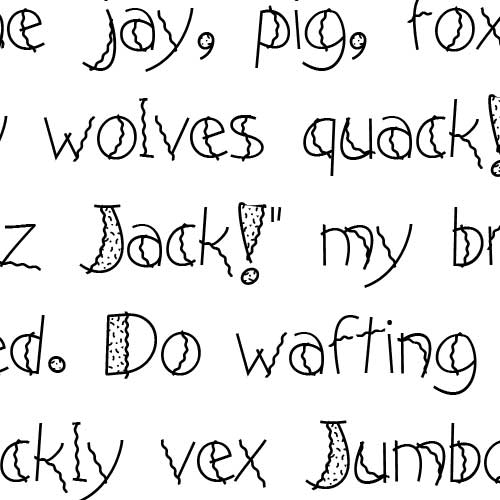 he jay, pig, fox
y wolves quack!
z Jack!" my br
ed. Do wafting
ckly vex Jumbo